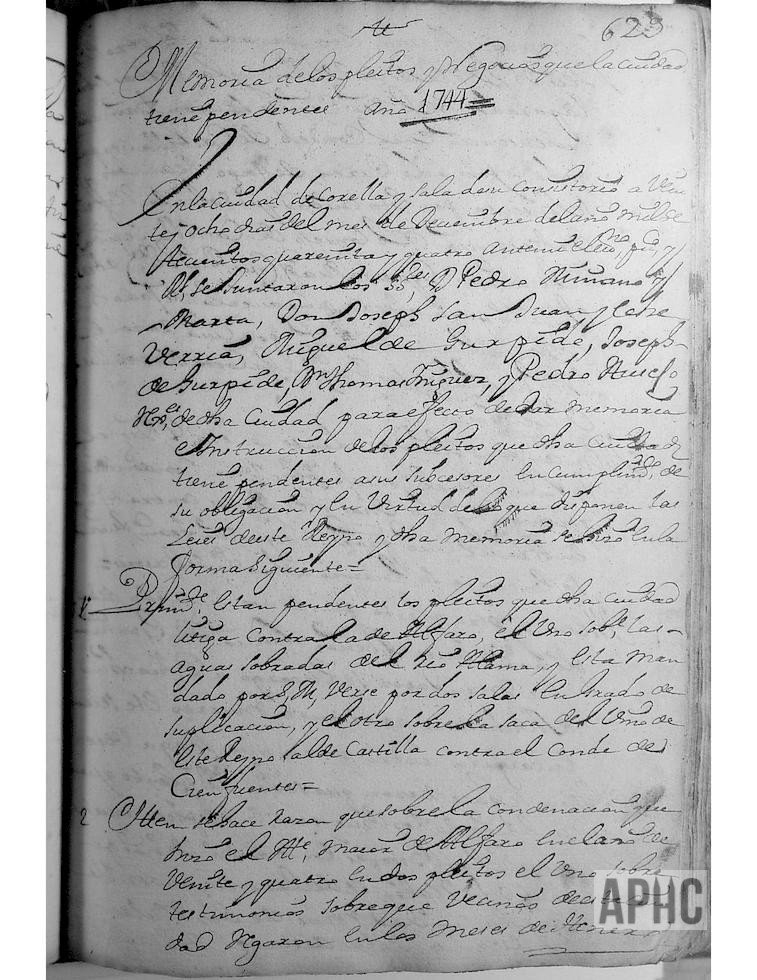 623
Memoria de los pleitos y Negocios que la ciudad
tiene pendientes Año 1744
En la ciudad de Corella y sala de su Consistorio a Vein
te y ocho dias del mes de Deciembre del año mil se
tecientos quarenta y quatro ante mi el
se Juntaron los D Pedro Miñano y
Marta, Don Joseph San Juan y
Miguel de Gurpide, Joseph
de Gurpide, Thomas Iñiguez, y Pedro
de dha Ciudad para efecto de dar memoria
e Instruccion de los pleitos que dha ciudad
tiene pendentes a sus subcesores en cumplim.to de
su obligacion y en Virtud de lo que disponen las
Leies deste Reyno y dha memoria se hizo en la
forma siguiente=
1º Primte. estan pendentes los pleitos que dha ciudad
litiga contra la de Alfaro, el Uno sobe. las
aguas sobradas del rio Alama, y esta man
dado por S, M, Verse por dos salas en grado de
suplicacion, y el otro sobre la saca del Vino de
este Reyno al de Castilla contra el Conde de
Cienfuentes=
2 Itten se hace razon que sobre la condenacion que
hizo el Alle, maior de Alfaro en el año de
Veinte y quatro en dos pleitos el Uno sobre
testimonios sobre que Vecinos de esta ciu
dad Regaron en los meses de Henero
APHC